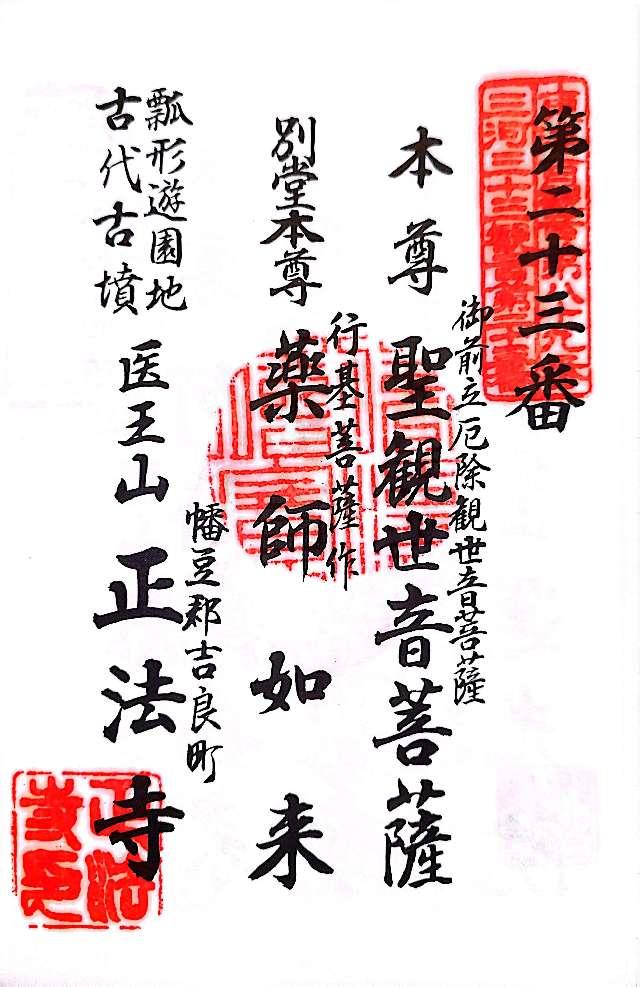 第二十三番
御前立厄除観世音菩薩
本尊 聖観世音菩薩
行基菩薩作
別堂本尊 薬師如来
幡豆郡吉良町
瓢形遊園地
古代古墳
医王山 正法寺